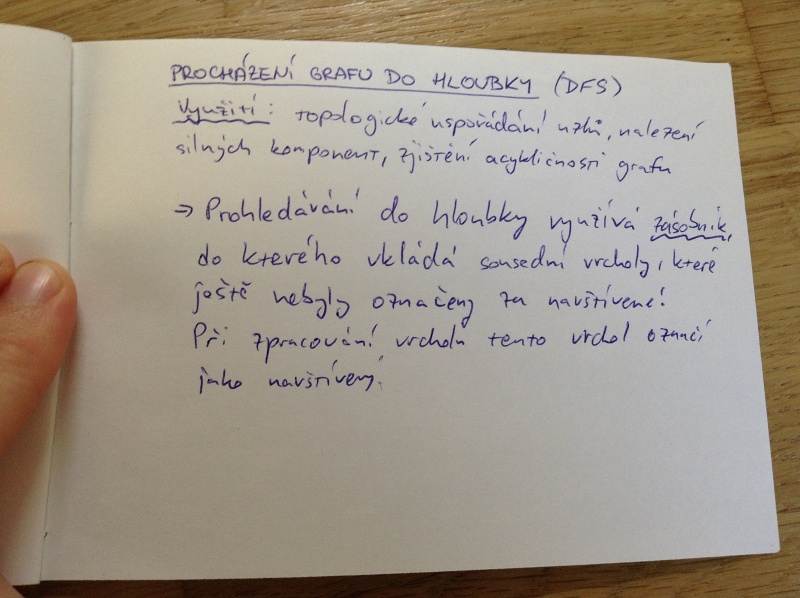 PROCHÁZENÍ GRAFU DO HLOUBKY (DFS)
Využití: topologické uspořádání uzlů, nalezení
silných komponent, zjištění acykličnosti grafu
→ Prohledávání do hloubky využívá zásobník,
do kterého vkládá sousední vrcholy, které
ještě nebyly označeny za navštívené!
Při zpracování vrcholu tento vrchol označí
jako navštívený.